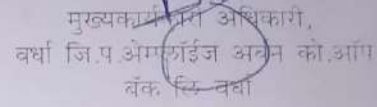 मुख्यकार्यकारी अधिकारी,
वर्धा जि.प.ॲम्प्लॉईज अर्बन को.ऑप
बँक लि वर्धा